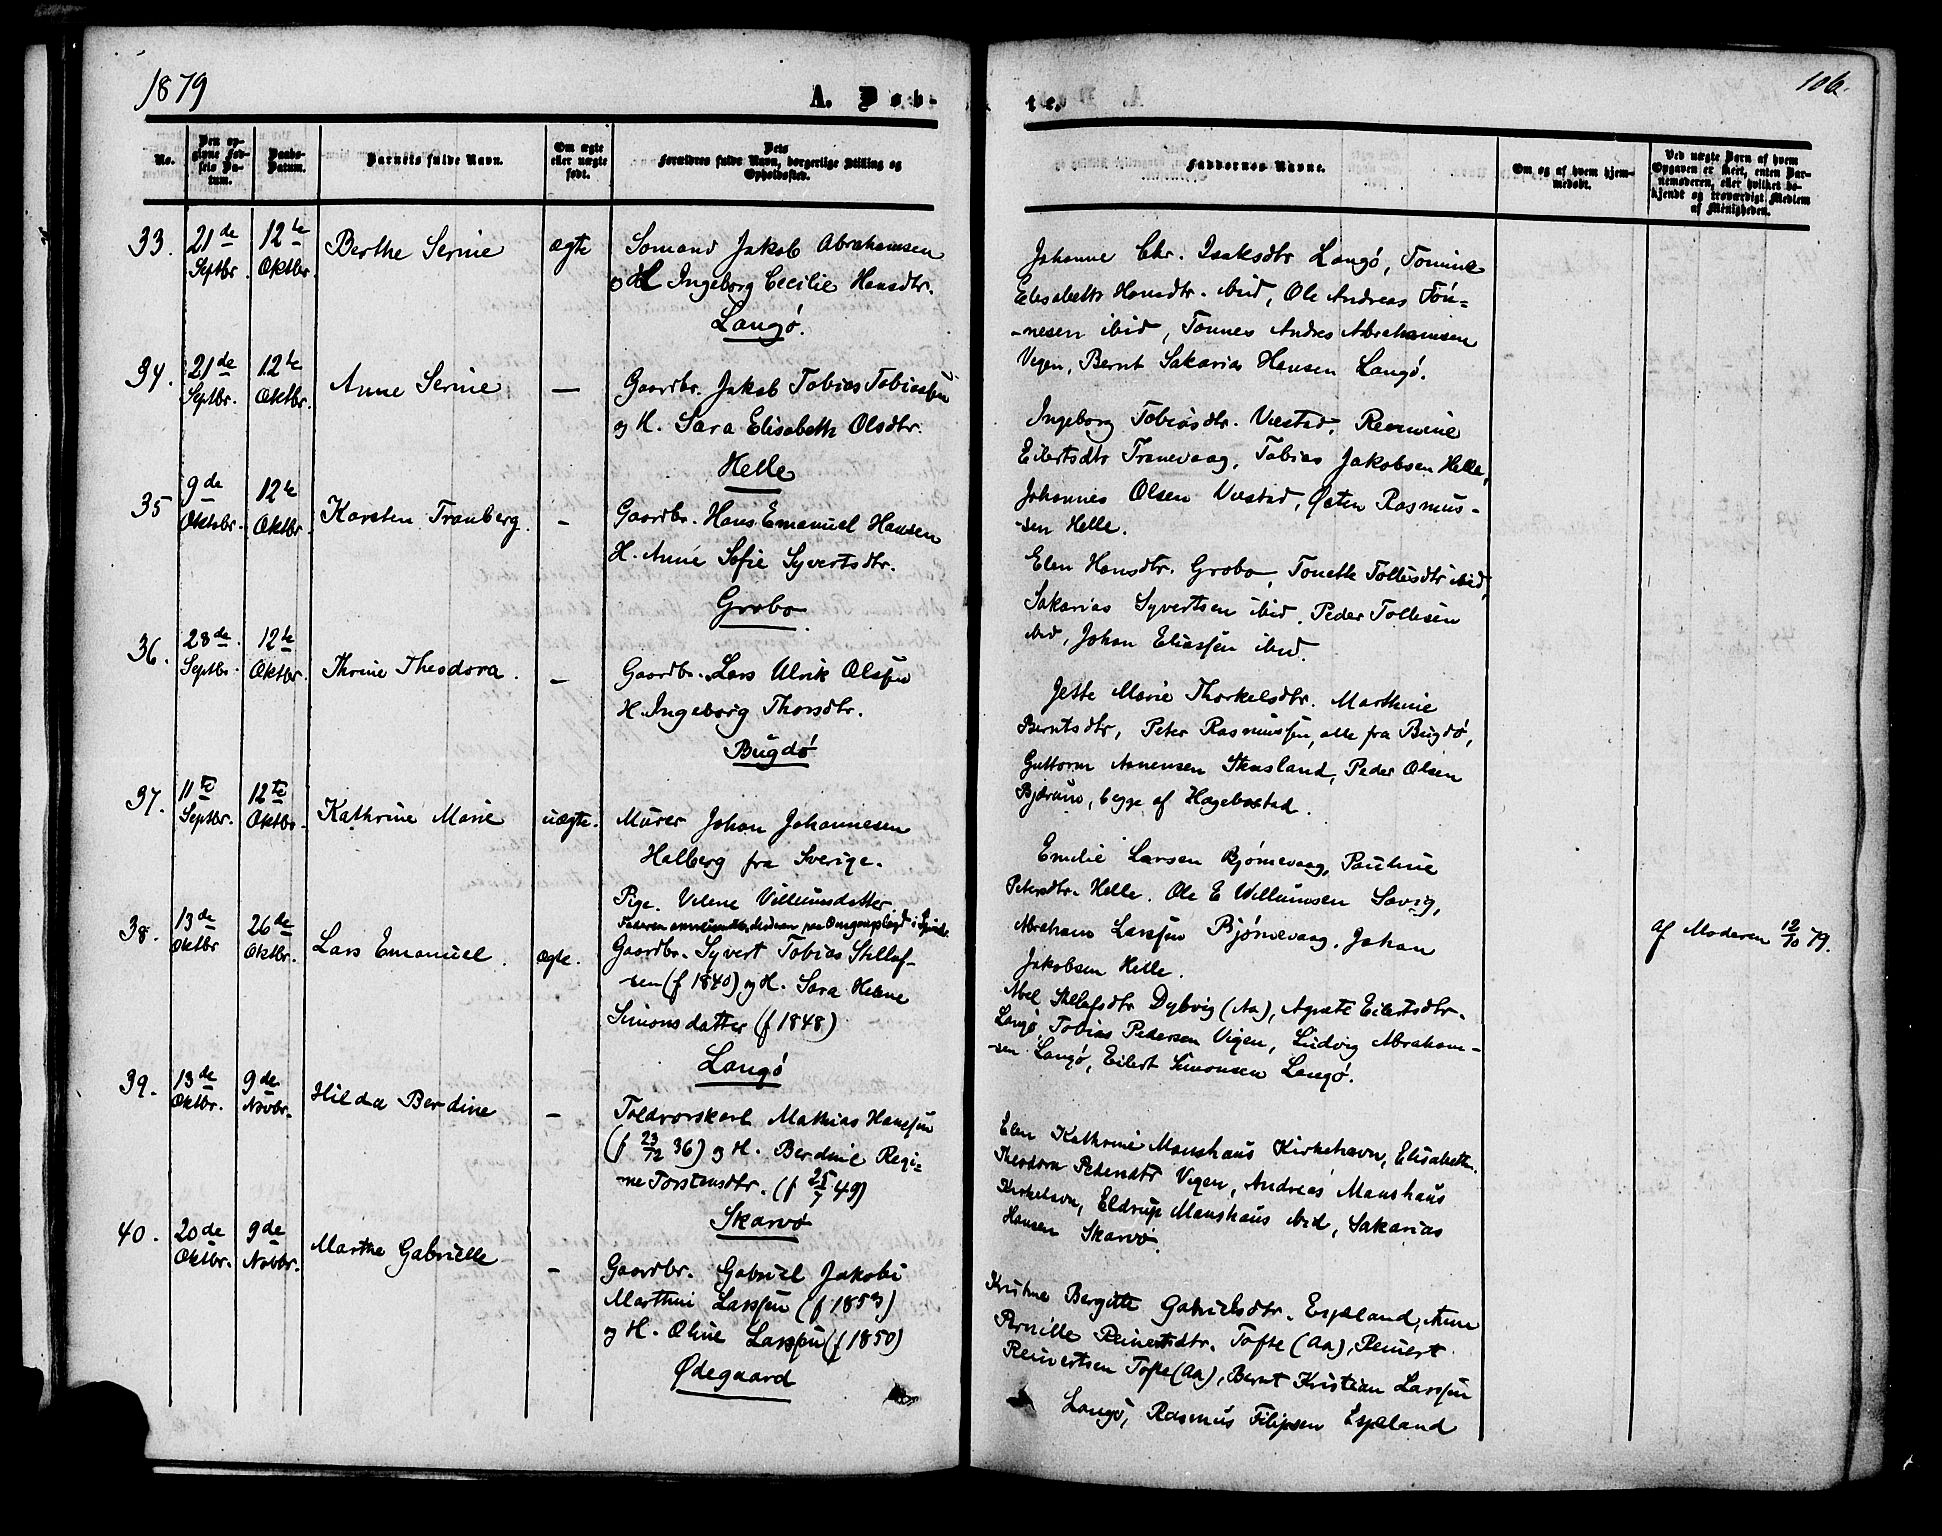 1879
A. Døb-
No.
Den op-
givne Fød-
sels Da-
tum.
Daabs-
Datum.
Barnets fulde Navn.
Om ægte
eller uægte
født.
Dets
Forældres fulde Navn, borgerlige Stilling og
Opholdssted.
33. 21de Septbr. 12te Oktbr. Berthe Serine ægte
Sømand Jakob Abrahamsen
og H Ingeborg Cecilie Hansdtr.
Langø.
34. 21de Septbr. 12te Oktbr. Anne Serine —
Gaardbr. Jakob Tobias Tobiassen
og H. Sara Elisabeth Olsdtr.
Helle
35 9de Oktobr. 12te Oktbr. Karsten Tranberg. -
Gaardbr. Hans Emanuel Hansen
H. Anne Sofie Syvertsdtr.
Grobo
36. 28de Septbr. 12te Oktbr. Thrine Theodora. -
Gaardbr. Lars Ulrik Olssen
H. Ingeborg Thorsdtr.
Bugdø
37. 11te Septbr. 12te Oktbr. Kathrine Marie uægte.
Murer Johan Johannesen
Halberg fra Sverige.
Pige. Velene Villumsdatter
38. 13de Oktbr 26de Oktbr. Lars Emanuel. ægte.
Gaardbr. Syvert Tobias Stillef-
sen (f 1840) og H. Sara Helene
Simonsdatter (f 1848)
Langø
39. 13de Oktbr. 9de Novbr. Hilda Berdine -
Toldrorskarl Mathias Hanssen
(f 23/12 36) og H. Berdine Regi-
ne Torstensdtr. (f 25/7 49)
Skarvø
40. 20de Oktbr. 9de Novbr. Marthe Gabrielle -
Gaardbr. Gabriel Jakobi
Marthin Larssen (f 1853)
og H. Oline Larssen (f 1850)
Ødegaard
106.
te.
Faddernes Navne.
Om og af hvem hjem-
medøbt.
Ved uægte Børn af hvem
Opgaven er skeet, enten Bar-
nemoderen, eller hvilket be-
kjendt og troværdigt Medlem
af Menigheden.
Johanne Chr. Isaksdtr Langø, Tomine
Elisabeth Hansdtr. ibid, Ole Andreas Tøn-
-nesen ibid, Tønnes Andres Abrahamsen
Vigen, Bernt Sakarias Hansen Langø.
Ingeborg Tobiasdtr. Væstad,
Eilertsdtr Tranevaag, Tobias Jakobsen Helle,
Johannes Olsen Væstad, Østen Rasmus-
-sen Helle.
Elen Hansdtr. Grobo, Tonette Tollisdtr ibid,
Sakarias Syvertsen ibid, Peder Tollesen
ibid, Johan Eliassen ibid.
Jette Marie Thorkelsdtr. Marthine
Berntsdtr, Peter Rasmussen, alle fra Bugdø,
Guttorm Asnensen Stensland, Peder Olsen
Bjærum, begge af Hægebostad.
Emilie Larsen Bjørnevaag, Pauline
Petersdtr. Helle. Ole E Willumsen Søvig,
Abraham Larssen Bjørnevaag, Johan
Jakobsen Helle.
af Moderen 12/10 79.
Abel Stillefsdtr Dybvig (Aa), Agnete Eilertsdtr.
Langø, Tobias Pedersen Vigen, Ludvig Abraham-
-sen Langø, Eilert Simonsen Langø.
Elen Kathrine Manshaus Kirkehavn, Elisabeth
Theodora Pedersdtr Vigen, Andreas Manshaus
Kirkehavn, Eldrup Manshaus ibid, Sakarias
Hansen Skarvø.
Kristine Bergitte Gabrielsdtr. Espeland, Anne
Pernille Reinertsdtr. Tofte (Aa), Reinert
Reinertsen Tofte (Aa), Bernt Kristian Larssen
Langø, Rasmus Filipsen Espeland